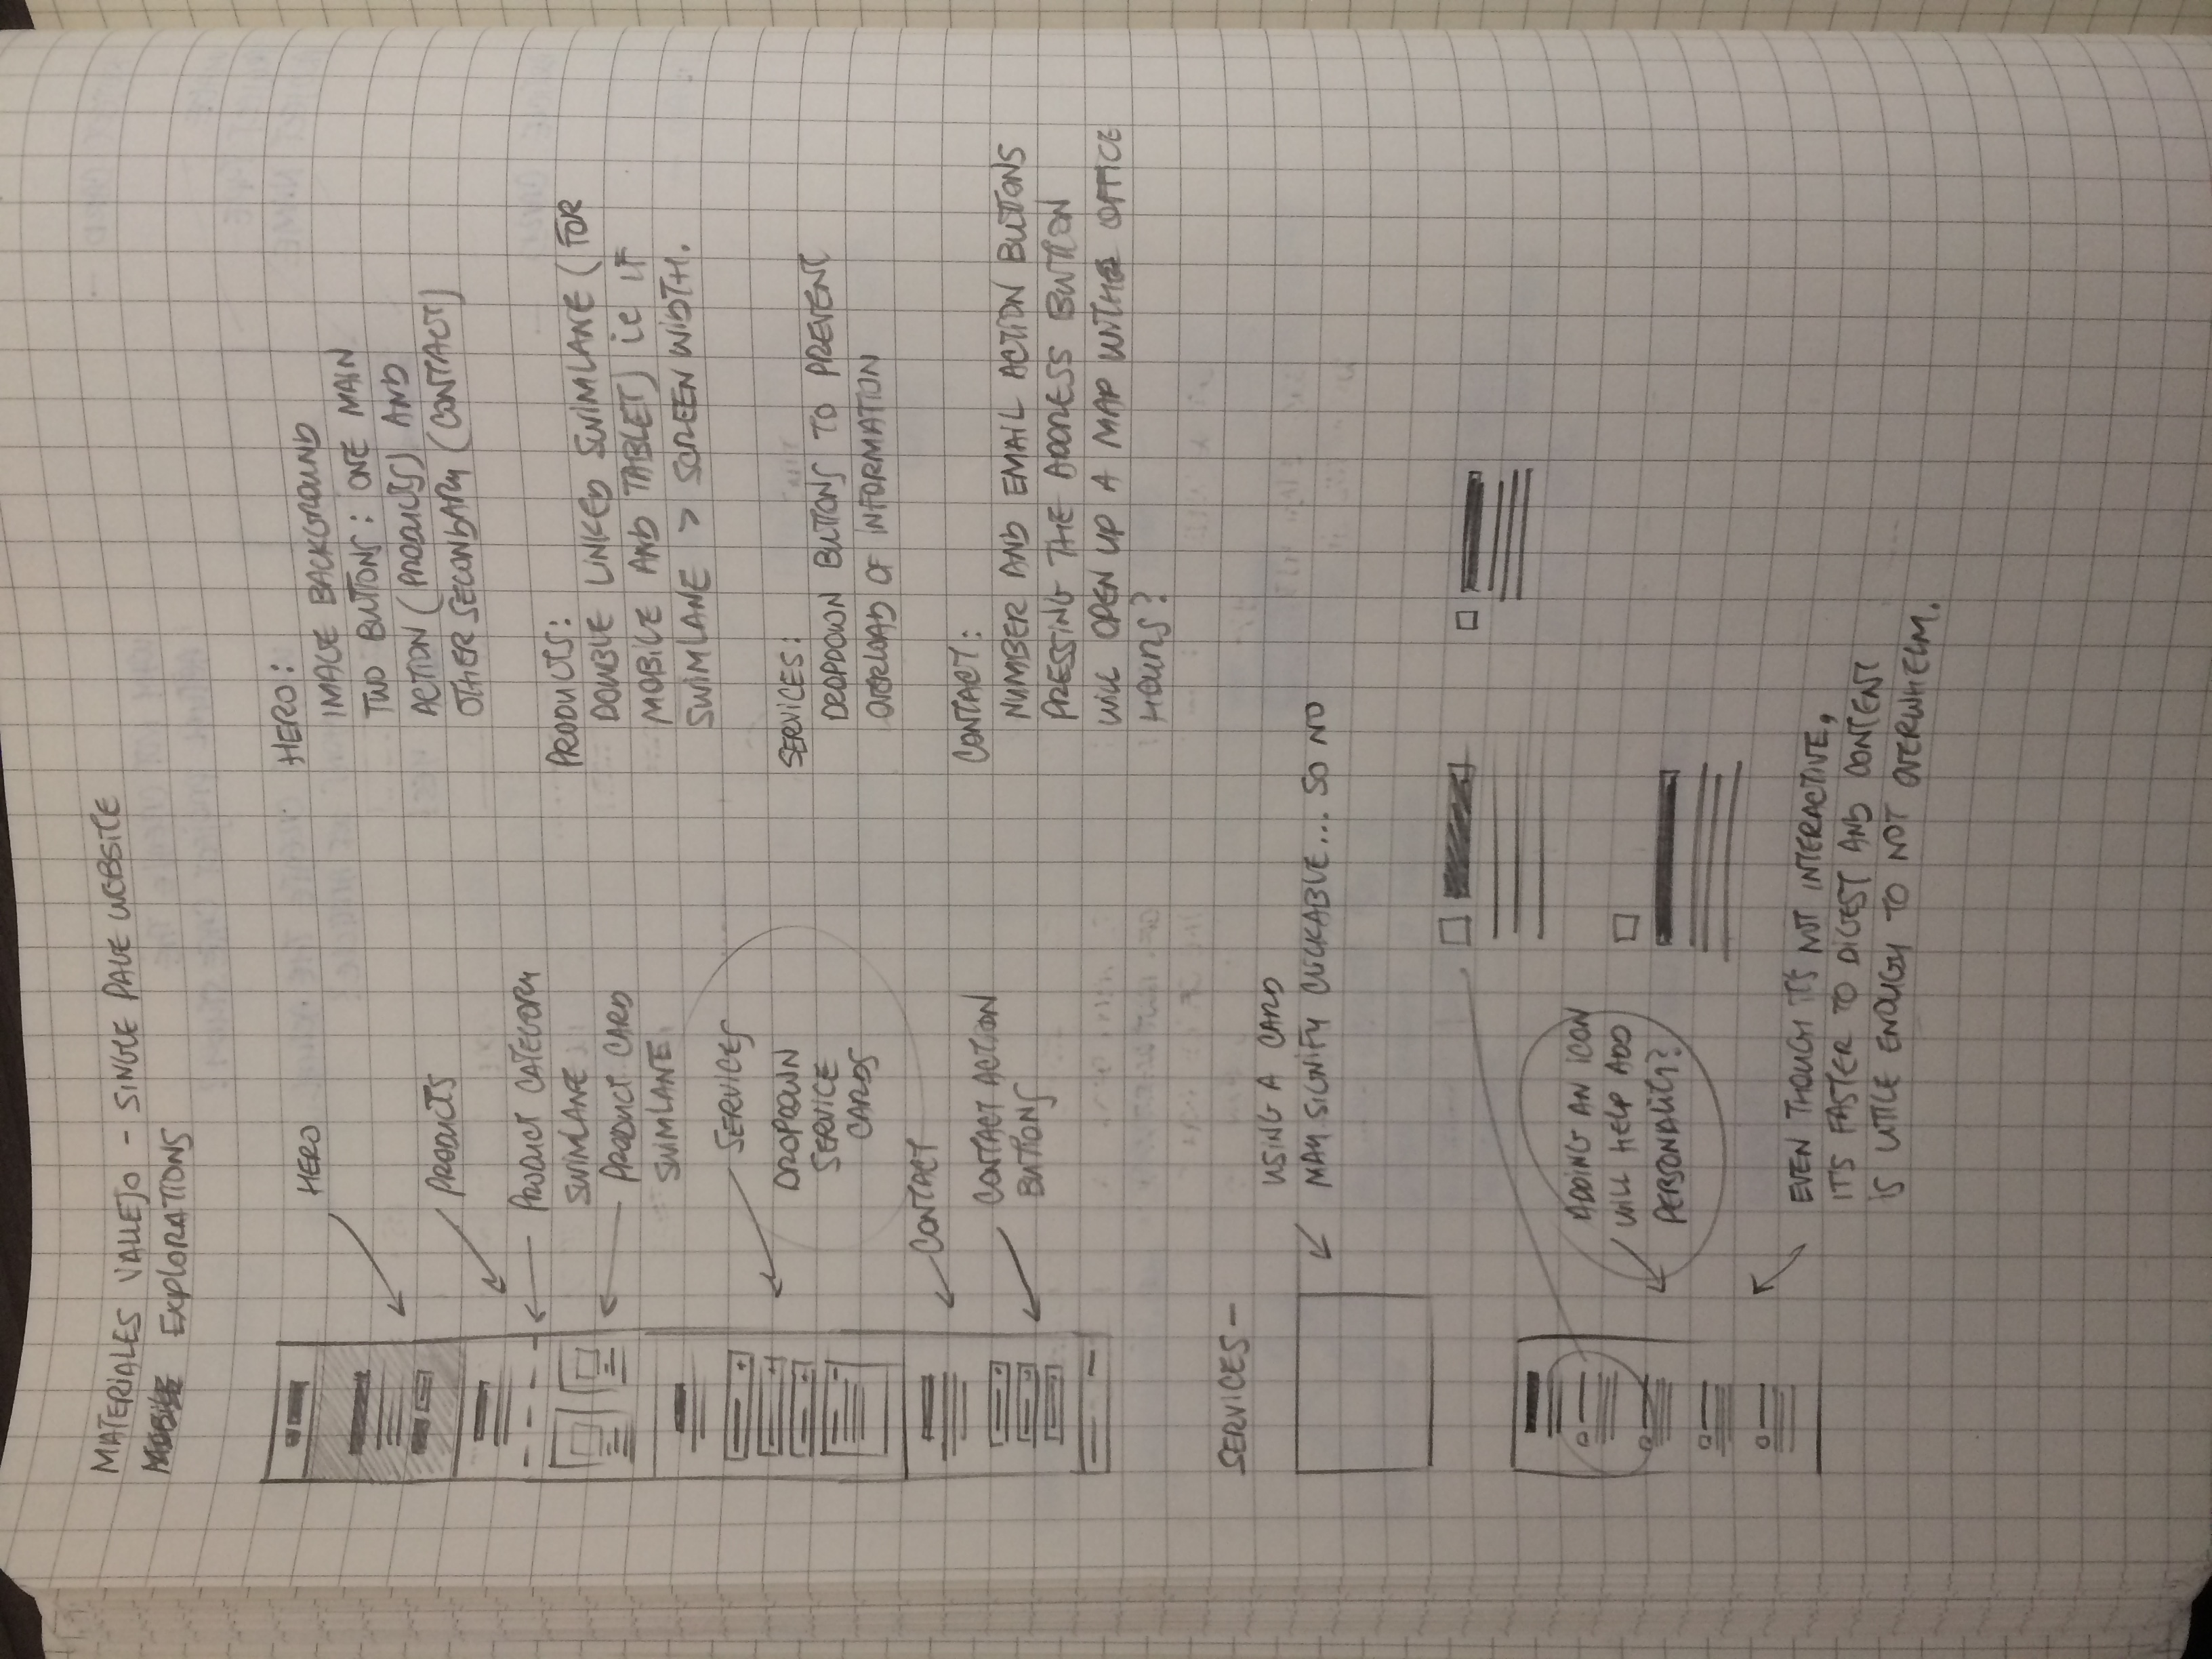 MATERIALES VALLEJO - SINGLE PAGE WEBSITE
MOBILE EXPLORATIONS
HERO
PRODUCTS
PRODUCT CATEGORY
SWIMLANE
PRODUCT CARD
SWIMLANE
SERVICES
DROPDOWN
SERVICE
CARDS
CONTACT
CONTACT ACTION
BUTTONS
HERO:
IMAGE BACKGROUND
TWO BUTTONS: ONE MAIN
ACTION (PRODUCTS) AND
OTHER SECONDARY (CONTACT)
PRODUCTS:
DOUBLE LINKED SWIMLANE (FOR
MOBILE AND TABLET) ie IF
SWIMLANE > SCREEN WIDTH.
SERVICES:
DROPDOWN BUTTONS TO PREVENT
OVERLOAD OF INFORMATION
CONTACT:
NUMBER AND EMAIL ACTION BUTTONS
PRESSING THE ADDRESS BUTTON
WILL OPEN UP A MAP WITH OFFICE
HOURS?
SERVICES -
USING A CARD
MAY SIGNIFY CLICKABLE... SO NO
ADDING AN ICON
WILL HELP ADD
PERSONALITY?
EVEN THOUGH IT'S NOT INTERACTIVE,
IT'S FASTER TO DIGEST AND CONTENT
IS LITTLE ENOUGH TO NOT OVERWHELM.